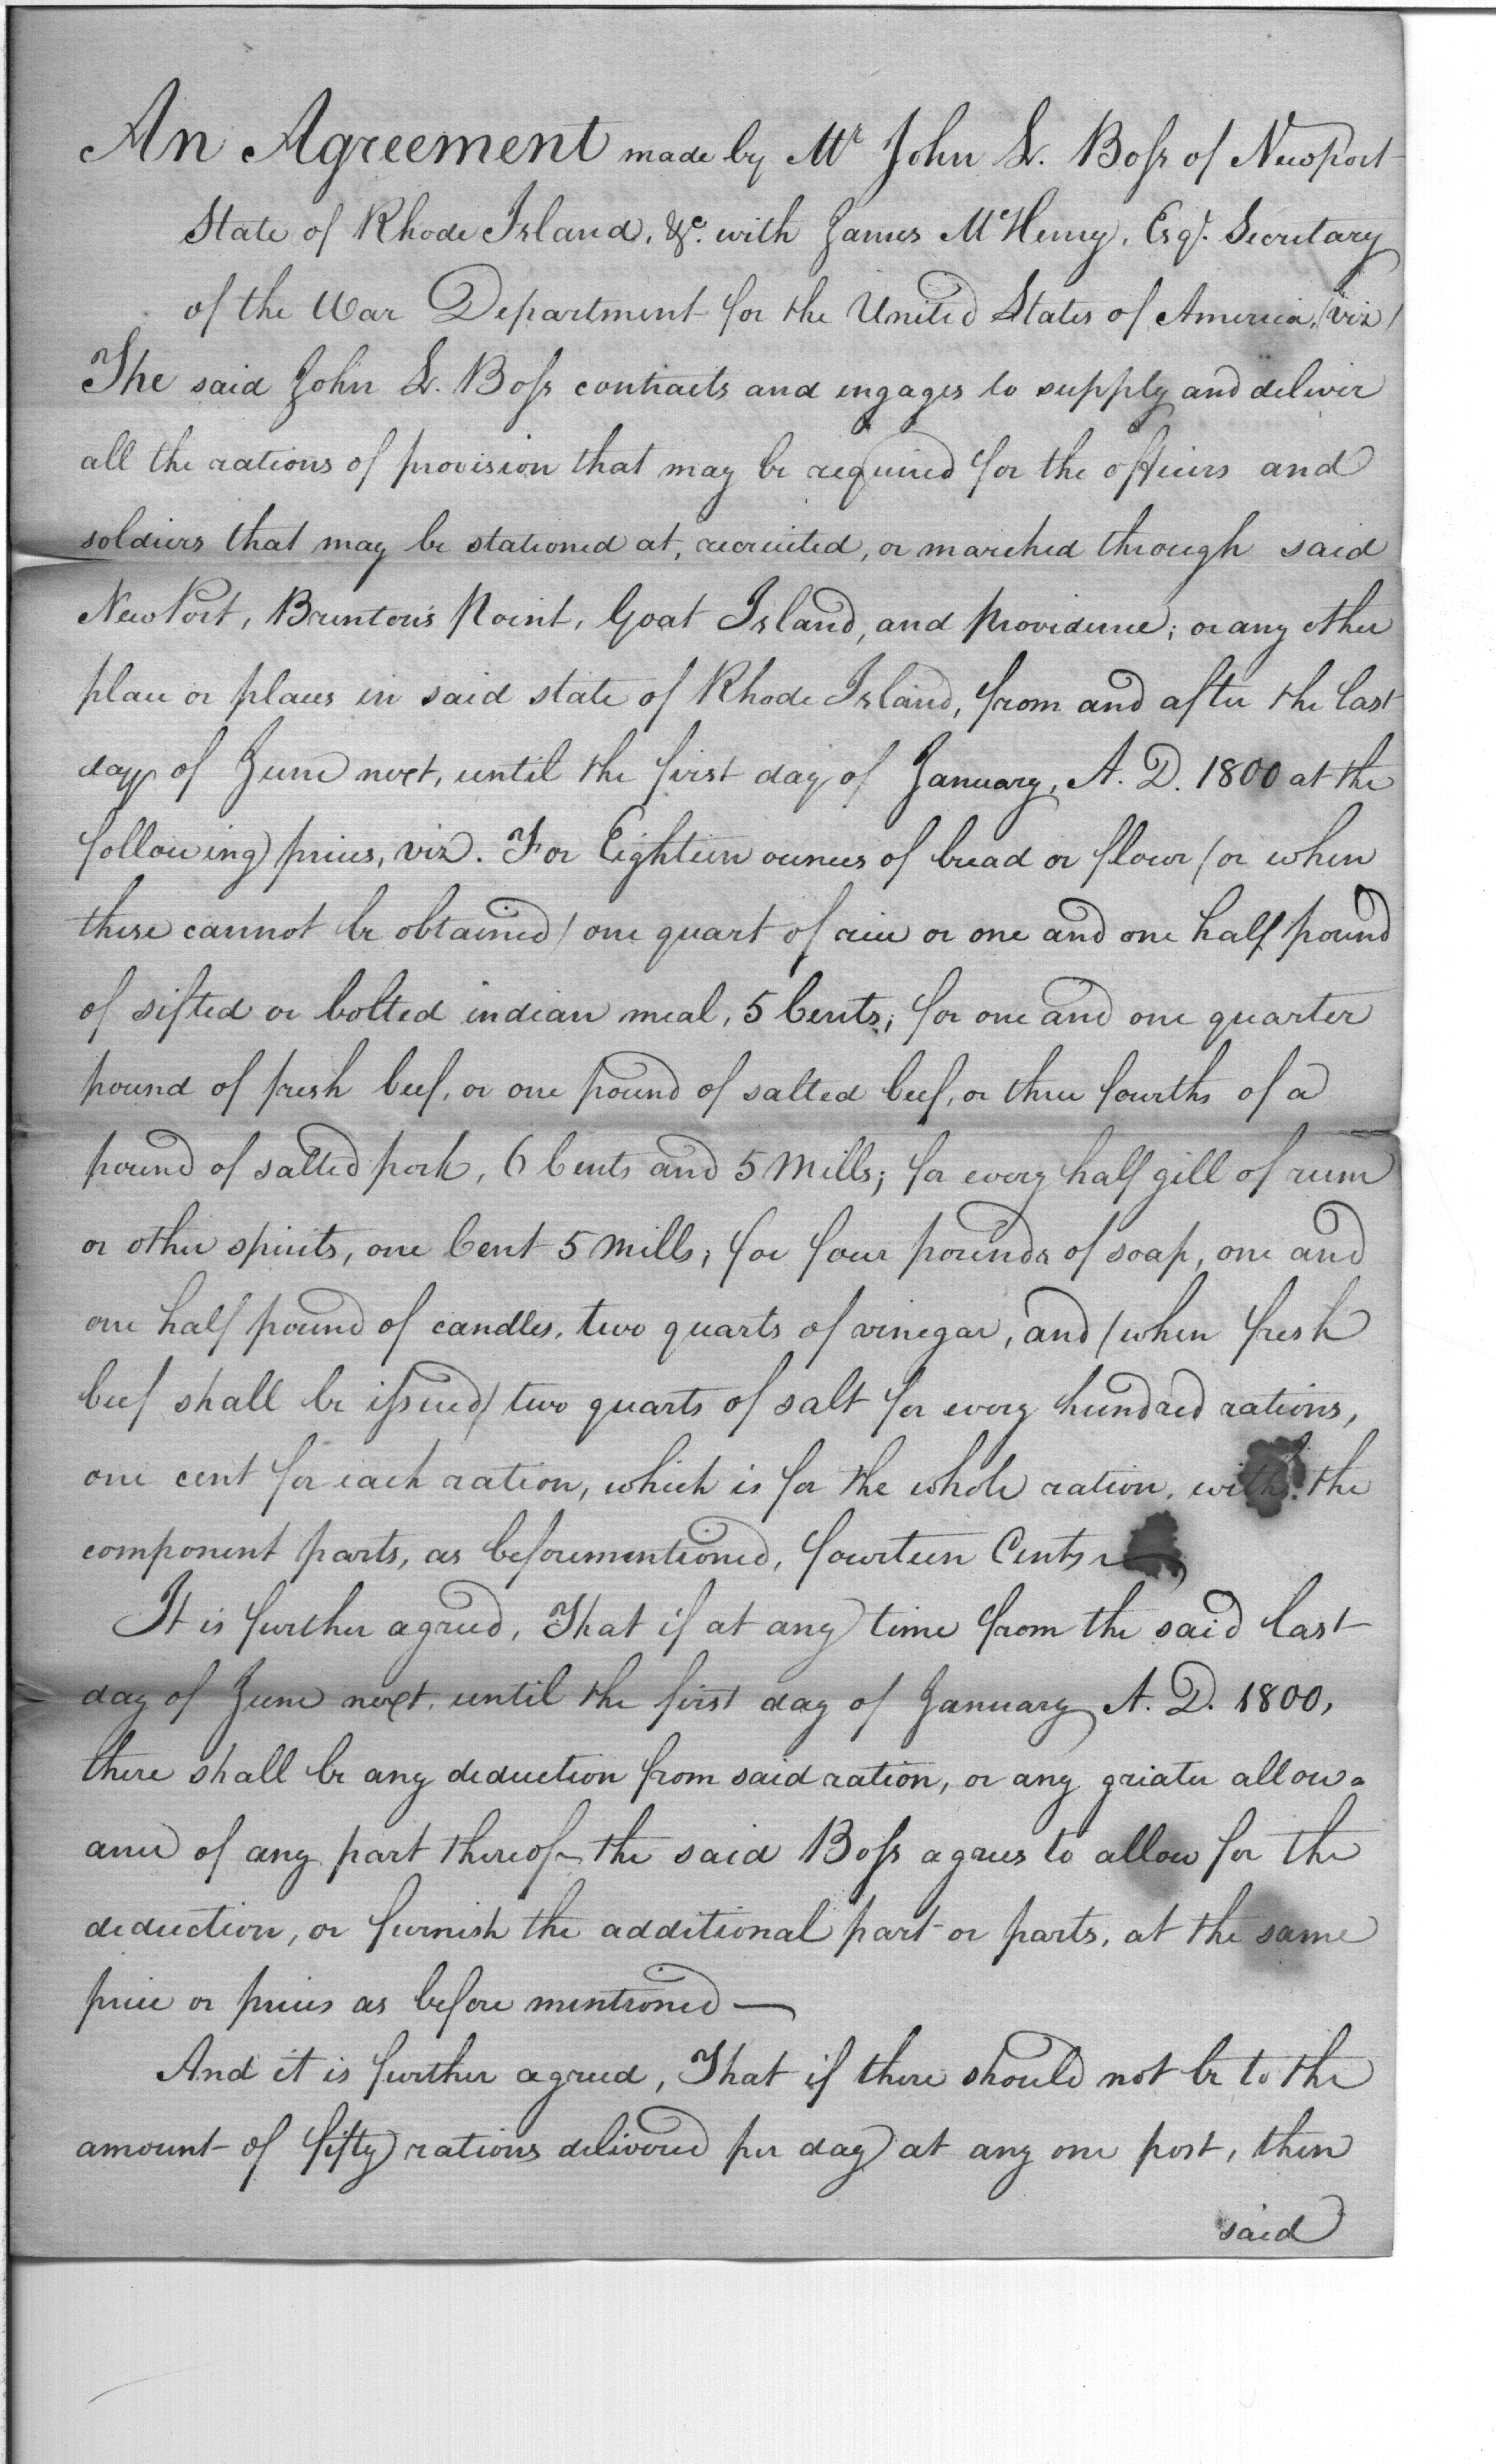 An Agreement made by Mr John L. Boſs of Newport
State of Rhode Island, &c. with James McHenry, Esqr. Secretary
of the War Department for the United States of America, (viz)
The said John L. Boſs contracts and engages to supply and deliver
all the rations of provision that may be required for the officers and
soldiers that may be stationed at, recruited, or marched through said
NewPort, Brenton's Point, Goat Island, and Providence; or any other
place or places in said state of Rhode Island, from and after the last
day of June next, until the first day of January, A. D. 1800 at the
following prices, viz. For Eighteen ounces of bread or flour (or when
these cannot be obtained) one quart of rice or one and one half pound
of sifted or bolted indian meal, 5 Cents; for one and one quarter
pound of fresh beef, or one pound of salted beef, or three fourths of a
pound of salted pork, 6 Cents and 5 Mills; for every half gill of rum
or other spirits, one Cent 5 Mills; for four pounds of soap, one and
one half pound of candles, two quarts of vinegar, and (when fresh
beef shall be iſsued) two quarts of salt for every hundred rations,
one cent for each ration, which is for the whole ration, with the
component parts, as beforementioned, fourteen Cents
It is further agreed, That if at any time from the said last
day of June next, until the first day of January A. D. 1800,
there shall be any deduction from said ration, or any greater allow-
ance of any part thereof - the said Boſs agrees to allow for the
deduction, or furnish the additional part or parts, at the same
price or prices as before mentioned —
And it is further agreed, That if there should not be to the
amount of fifty rations delivered per day at any one post, then
said